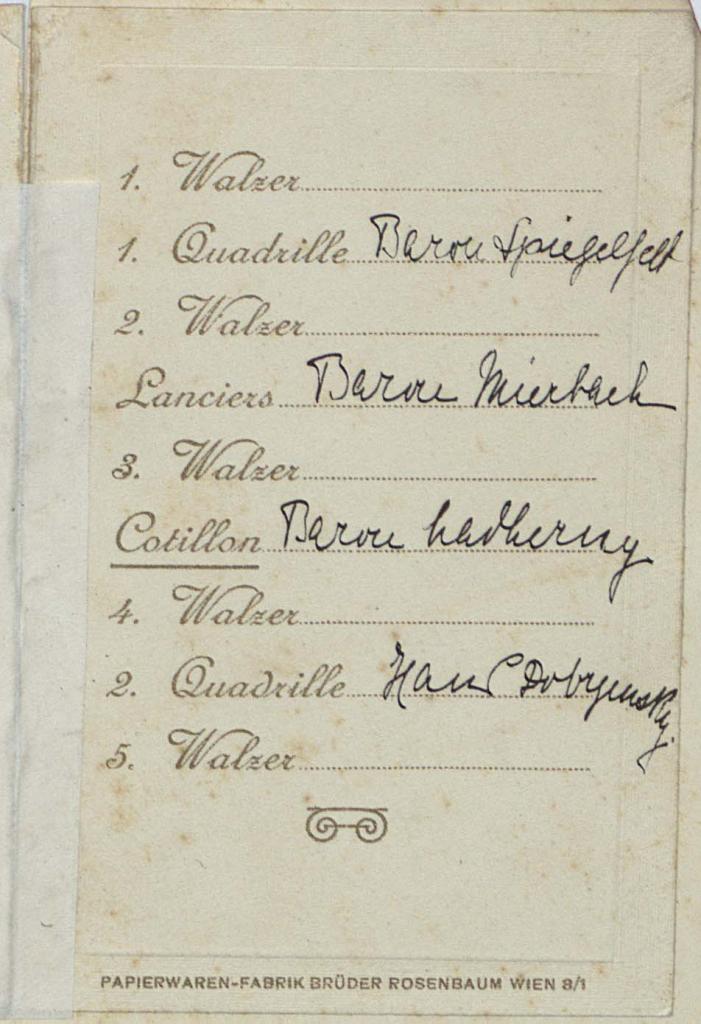 1. Walzer
1. Quadrille Baron Spiegelfelt
2. Walzer
Lanciers Baron Mierbach
3. Walzer
Cotillon Baron Nadherny
4. Walzer
2. Quadrille Hans Dobrzensky.
5. Walzer
PAPIERWAREN-FABRIK BRÜDER ROSENBAUM WIEN 8/1